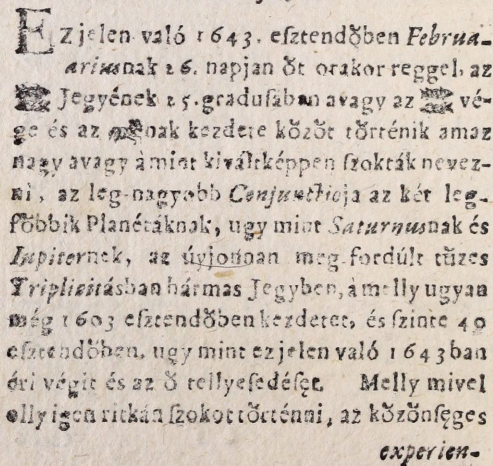 EZ jelen való 1643. eſztendőben Februa-
ariusnak 26. napjan őt orakor reggel, az
♓ Jegyének 25. graduſában avagy az ♓ vé-
ge és az ♈nak kezdete kőzőt tőrténik amaz
nagy avagy àmint kiváltképpen ſzokták nevez-
ni, az leg-nagyobb Conjunctioja az két leg-
főbbik Planétáknak, ugy mint Saturnusnak és
Iupiternek, az újonnan meg-fordúlt tűzes
Triplicitásban hármas Jegyben, àmelly ugyan
még 1603 eſztendőben kezdetet, és ſzinte 40
eſztendőben, ugy mint ez jelen való 1643 ban
éri végit és az ő tellyeſedéſęt. Melly mivel
olly igen ritkán ſzokot tőrténni, az kőzőnſęges
experien-